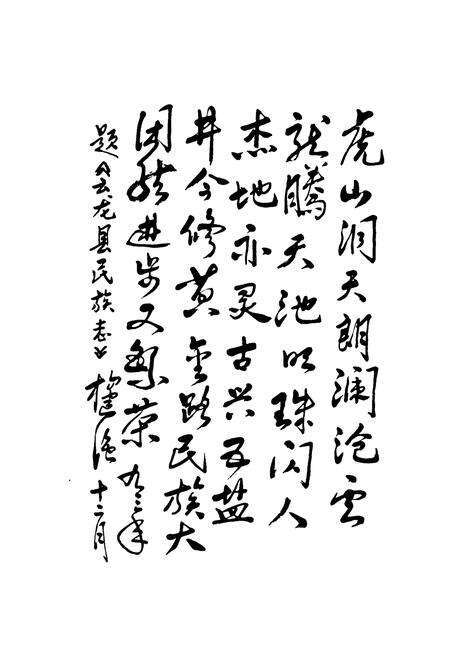 虎山洞天朗澜沧云
龙腾天池明珠闪人
杰地亦灵古兴五盐
井今修黄金路民族大
团结进步又繁荣 九三年
题《云龙县民族志》 十二月